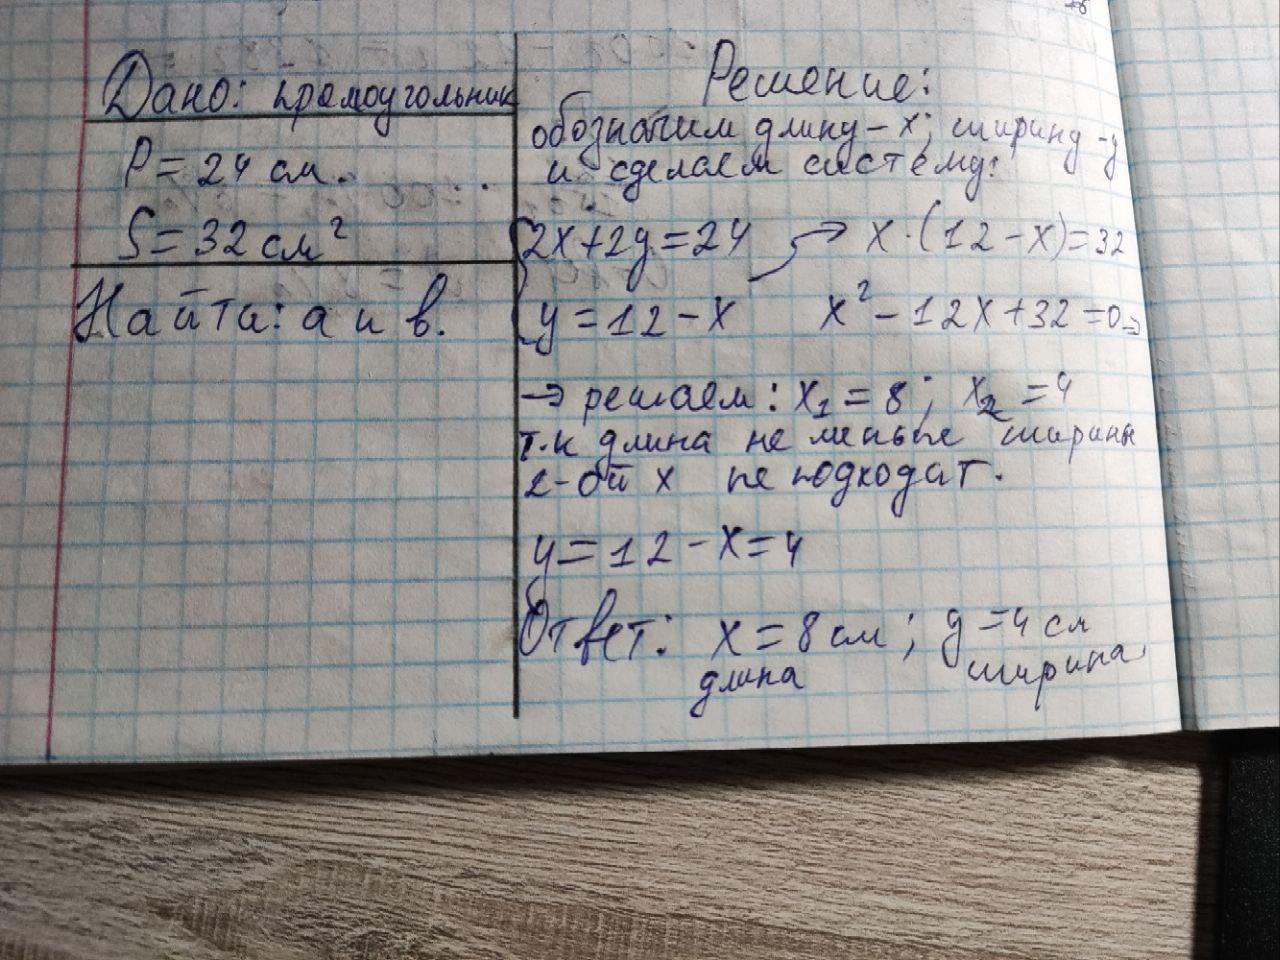 Дано: прямоугольник
P = 24 см.
S = 32 см²
Найти: а и в.
Решение:
обозначим длину - х; ширину - у
и сделаем систему:
2x+2y=24
x·(12-x)=32
y=12-x
x²-12x+32=0→
→ решаем: x₁=8; x₂=4
т.к длина не меньше ширины
2-ой х не подходит.
y=12-x=4
Ответ: x=8 см; y=4 см
длина ширина